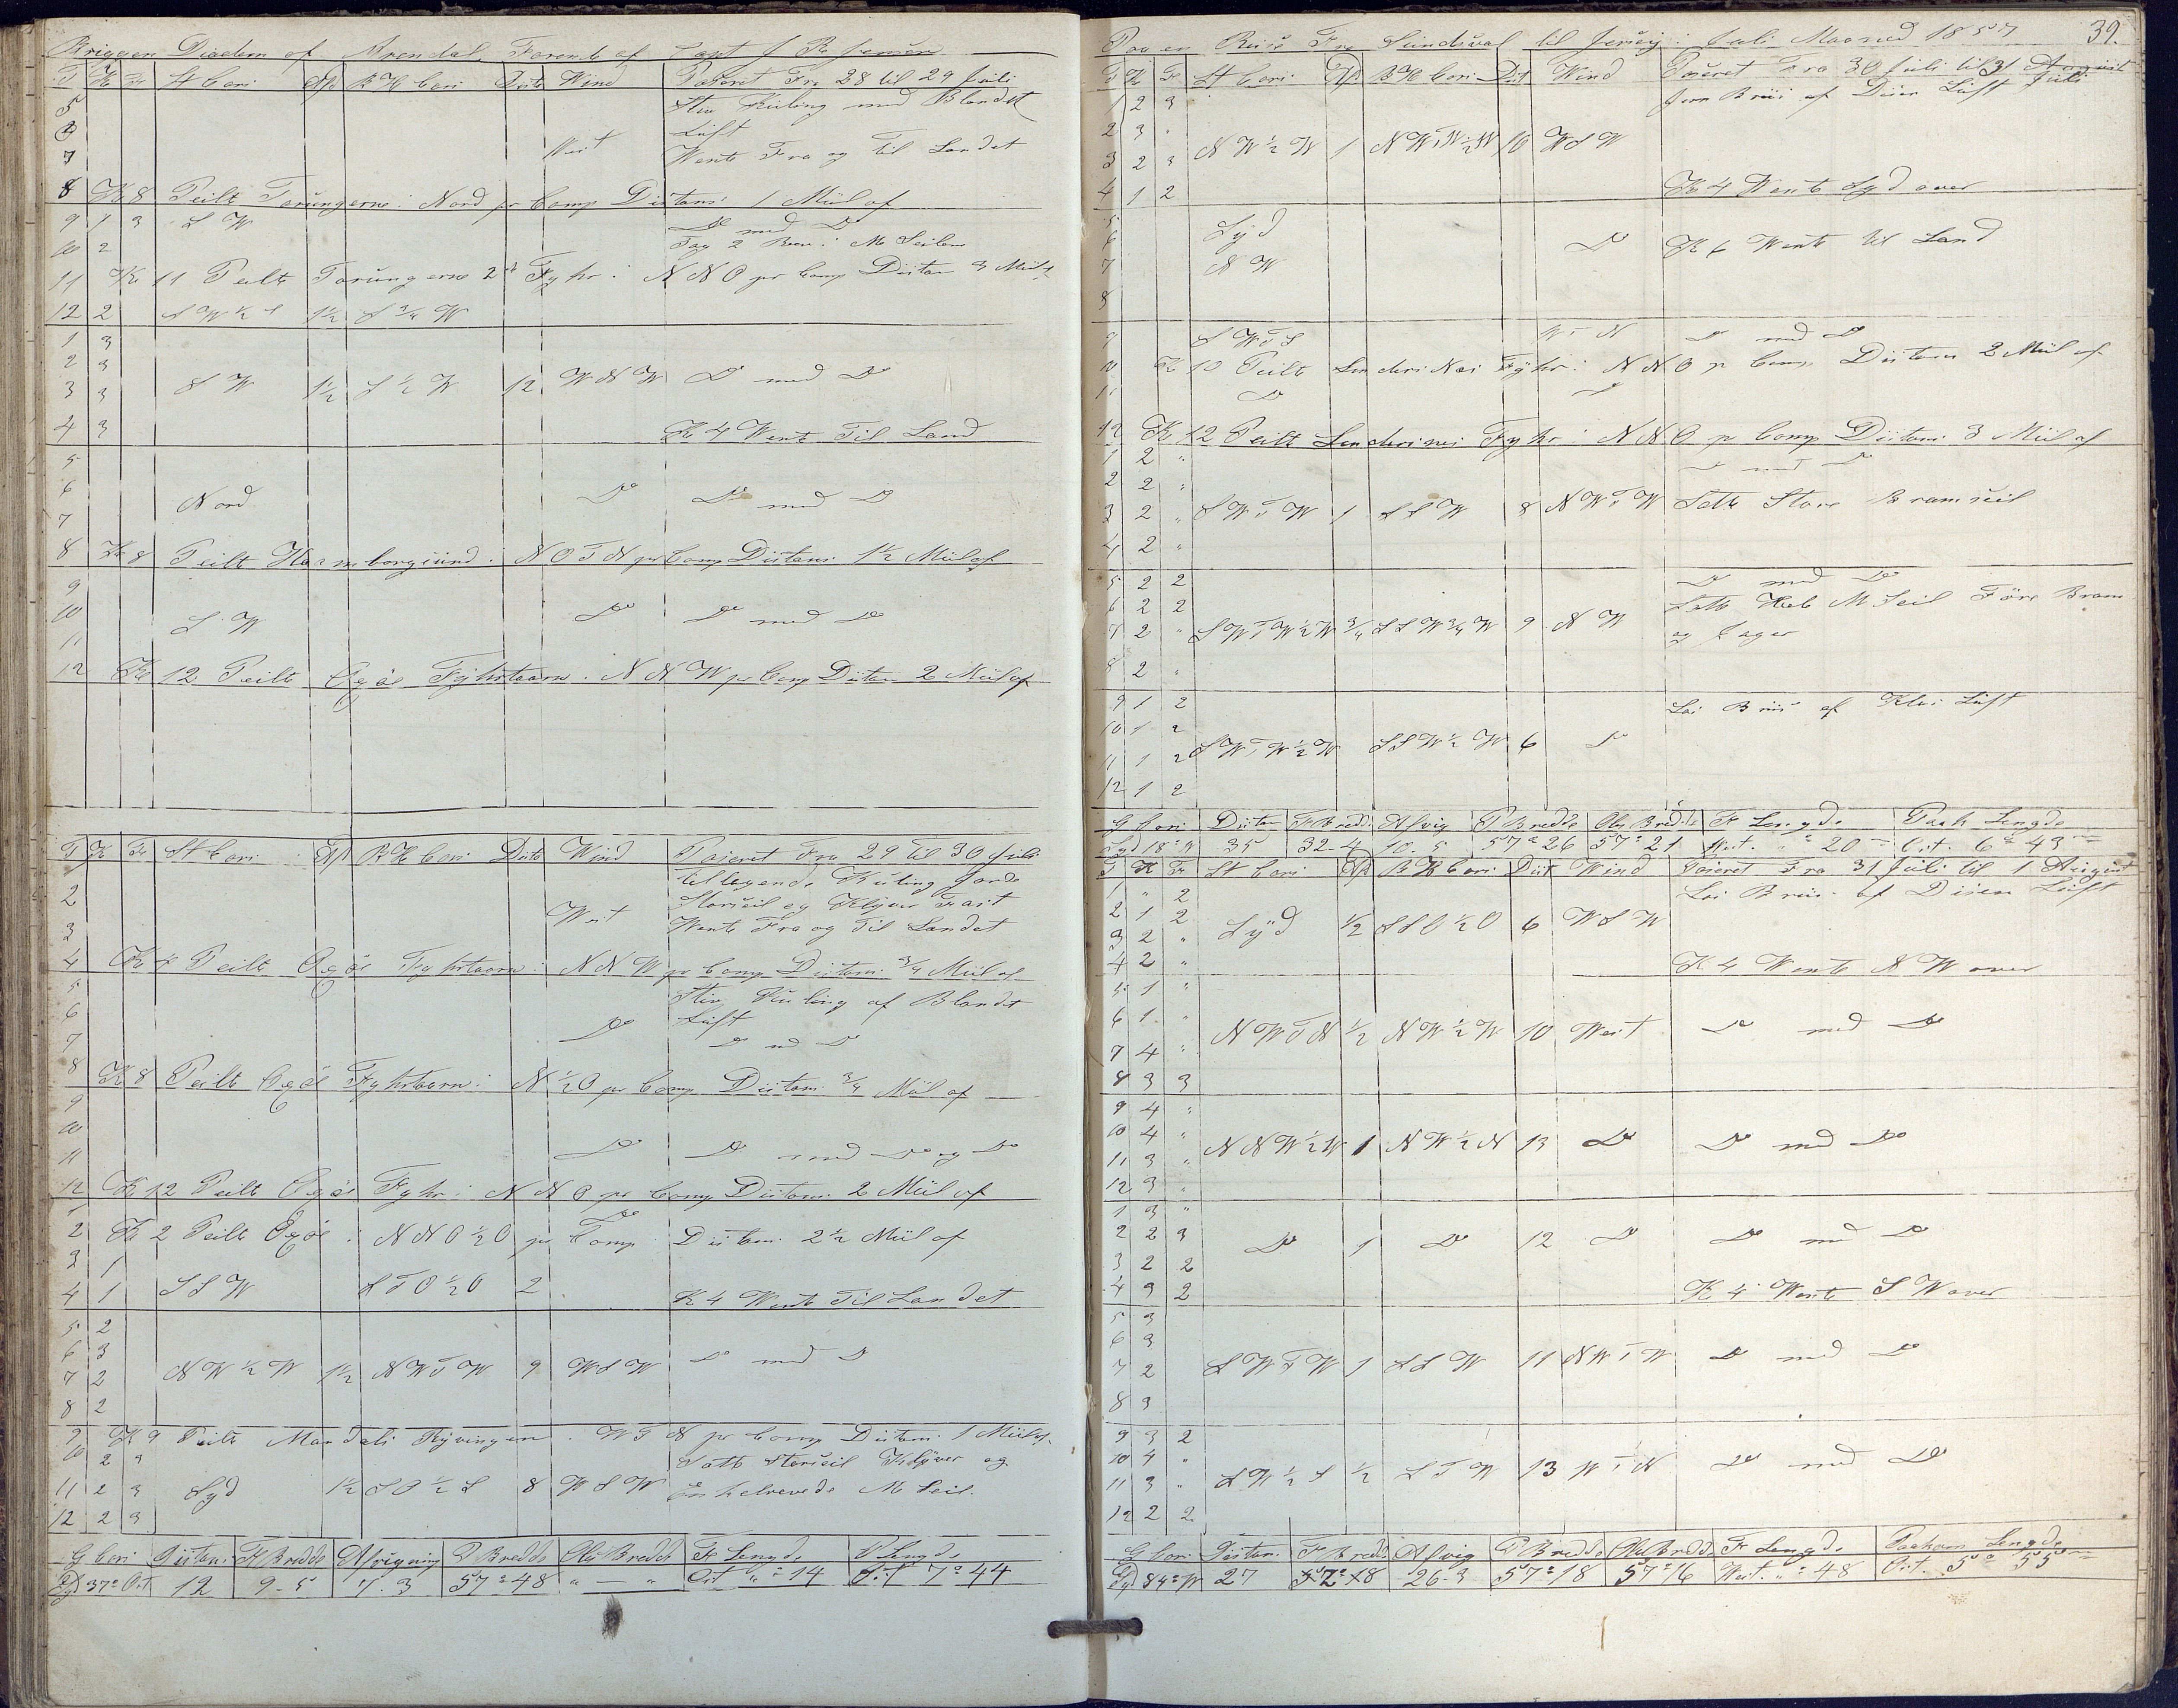 Briggen Diadem af Arendal Førende af Capt J
T K Fr St Cors Afd B H Cors Dists Wind Paseret Fra 28 til 29 Juli
5 Stiv Kuling med Blandet
6 Luft
7 West Wente Fra og Til Landet
8 Kl 8 Peilte Torungerne i Nord pr Comp Distans 1 Miil af
9 1 3 S W Do med Do
10 2 Tog 2 i M Seilene
11 Kl 11 Peilte Torungerne 2de Fyhr i N N O pr Comp Distan 3 Miil af
12 2 S W ½ S 1½ S ¾ W
1 3
2 3
3 3 S W 1½ S ½ W 12 W N W Do med Do
4 3 Kl 4 Wente Til Land
5
6 Nord Do Do med Do
7
8 Kl 8 Peilt Homborgsund i N O T N pr Comp Distans 1½ Miil af
9
10 S W Do Do med Do
11
12 Kl 12 Peilte Oxøe Fyhrtaarn i N N W pr Comp Distan 2 Miil af
T K Fr St Cors Afd B H Cors Dists Wind Paseret Fra 29 Til 30 Juli
Tiltagende Kuling gorde
2 Storseil og Klyver Fast
3 West Wente Fra og Til Landet
4 Kl 4 Peilte Oxøe Fyhrtaarn i N N W pr Comp Distans ¾ Miil af
5 Stiv Kuling af Blandet
6 Do Luft
7 Do med Do
8 Kl 8 Peilte Oxøe Fyhrtaarn i N ½ O pr Comp Distans ¾ Miil af
9
10
11 Do Do med Do og Do
12 Kl 12 Peilte Oxøe Fyhr i N N O pr Comp Distans 2 Miil af
1 Do
2 Kl 2 Peilte Oxøe i N N O ½ O pr Comp Distans 2½ Miil af
3 1
4 1 S S W S T O ½ O 2 Kl 4 Wente Til Landet
5 2
6 3
7 2 N W ½ W 1½ N W T W 9 W S W Do med Do
8 2
9 Kl 9 Peilte Mandals Ryvingen i W T N pr Comp Distans 1 Miil af
10 2 3 Satte Storseil Klyver og
11 2 3 Syd 1½ S O ½ S 8 W S W Enkelrevede M Seil.
12 2 3
G Cors Distans F Bredde Afvigning P Bredde Obs Bredde F Lengde P Lengde
Syd 37° Ost 12 9-5 7.3 57°48 " — " Ost " 14 Ost 7°44
Paa en Reise Fra Sundsval til Jersey i Juli Maaned 1857 39.
T K Fr St Cors Afd B H Cors Dist Wind Paseret Fra 30 Juli til 31 August Juli
1 2 3 Jevn Briis af Diisen Luft
2 3 "
3 2 3 N W ½ W 1 N W T W ½ W 10 W S W
4 1 2 Kl 4 Wente Syd over
5
6 Syd Do Kl 6 Wente til Land
7 N W
8
9 S W T S W T N Do med Do
10 Kl 10 Peilt Lindesnes Fyhr i N N O pr Comp Distans 2 Miil af
11 Do Do
12 Kl 12 Peilt Lindesnes Fyhr i N N O pr Comp Distans 3 Miil af
1 2 " Do med Do
2 2 "
3 2 " S W T W 1 S S W 8 N W T W Satte Store Bramseil
4 2 "
5 2 2 Do med Do
6 2 2 Satte Hele M Seil Føre Bram
7 2 " S W T W ½ W ¾ S S W ¾ W 9 N W og Jager
8 2 "
9 1 2 Lai Briis af Klar Luft
10 1 2
11 1 2 S W T W ½ W S S W ½ W 6 Do
12 1 2
G Cors Distan F Bredde Afvig P Bredde Obs Bredde F Lengde Paak Lengde
Syd 18° W 35 32-4 10.5 57°26 57°21 West " 20 Ost. 6°43
T K Fr St Cors Afd B H Cors Dist Wind Paseret Fra 31 Juli til 1 August
1 " 2 Lai Briis af Diisen Luft
2 1 2
3 2 " Syd ½ S S O ½ O 6 W S W
4 2 " Kl 4 Wente N W over
5 1 "
6 1 " N W T N ½ N W ½ W 10 West Do med Do
7 4 "
8 3 3
9 4 "
10 4 " N N W ½ W 1 N W ½ N 13 Do Do med Do
11 3 "
12 3 "
1 3 "
2 2 3 Do 1 Do 12 Do Do med Do
3 2 2
4 3 2 Kl 4 Wente S W over
5 3
6 3
7 2 S W T W 1 S S W 11 N W T W Do med Do
8 3
9 3 2
10 4 "
11 3 " S W ½ S ½ S T W 13 W T N Do med Do
12 2 2
G Cors Distan F Bredd Afvig P Bredde Obs Bredd Fr Lengde Paakom Lengde
Syd 84° W 27 26-3 57°18 57°16 West. " 48 Ost. 5° 55